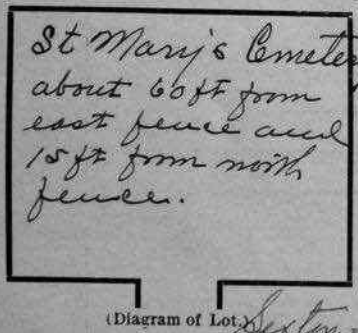 St Mary's Cemetery
about 60 ft from
east fence and
15 ft from north
fence.
(Diagram of Lot.) Sexton